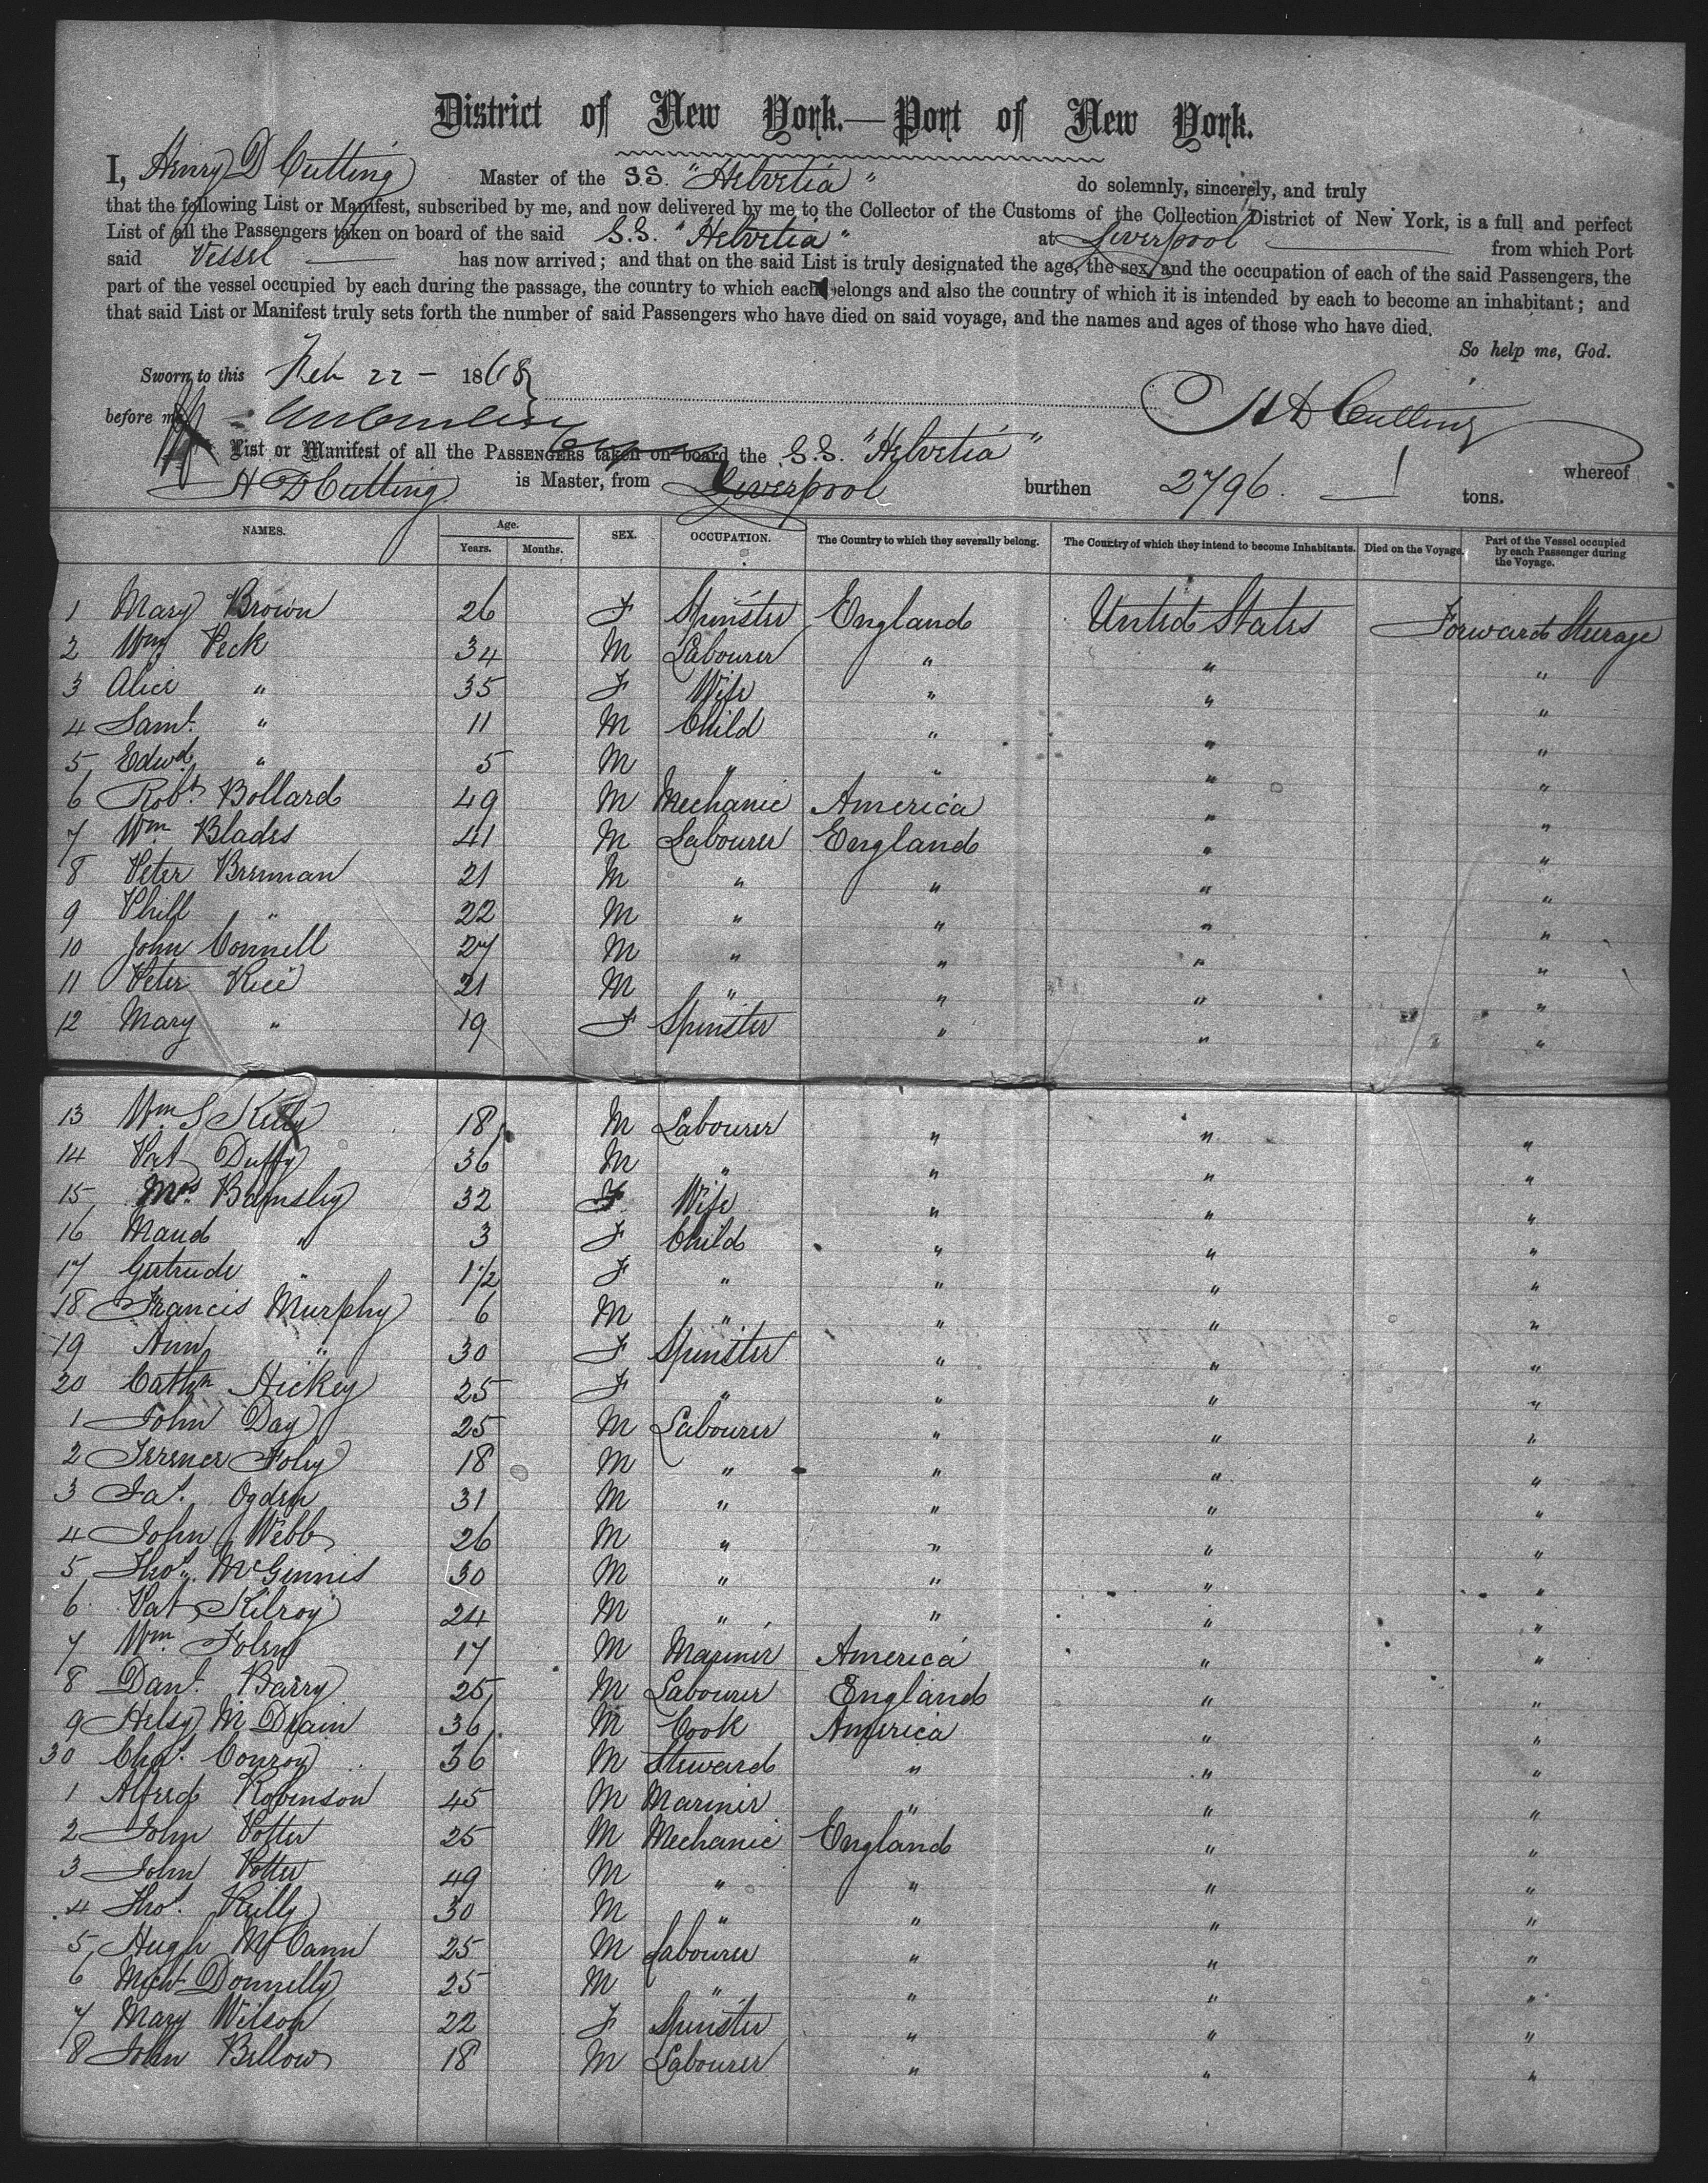 District of New York.—Port of New York.
I, Henry D Cutting Master of the S.S. "Helvetia" do solemnly, sincerely, and truly
that the following List or Manifest, subscribed by me, and now delivered by me to the Collector of the Customs of the Collection District of New York, is a full and perfect
List of all the Passengers taken on board of the said S.S. "Helvetia" at Liverpool from which Port
said Vessel has now arrived; and that on the said List is truly designated the age, the sex, and the occupation of each of the said Passengers, the
part of the vessel occupied by each during the passage, the country to which each belongs and also the country of which it is intended by each to become an inhabitant; and
that said List or Manifest truly sets forth the number of said Passengers who have died on said voyage, and the names and ages of those who have died.
So help me, God.
Sworn to this Feb 22 - 1868
before me H D Cutting
List or Manifest of all the PASSENGERS taken on board the S.S. "Helvetia" whereof
H D Cutting is Master, from Liverpool burthen 2796. tons.
NAMES. Age. SEX. OCCUPATION. The Country to which they severally belong. The Country of which they intend to become Inhabitants. Died on the Voyage. Part of the Vessel occupied by each Passenger during the Voyage.
Years. Months.
1 Mary Brown 26 F Spinster England United States Forward Steerage
2 Wm Peck 34 M Labourer " " "
3 Alice " 35 F Wife " " "
4 Saml. " 11 M Child " " "
5 Edwd " 5 M " " " "
6 Robt. Bollard 49 M Mechanic America " "
7 Wm Blades 41 M Labourer England " "
8 Peter Brennan 21 M " " " "
9 Phill " 22 M " " " "
10 John Connell 27 M " " " "
11 Peter Rice 21 M " " " "
12 Mary " 19 F Spinster " " "
13 Wm S Kelly 18 M Labourer " " "
14 Pat Duffy 36 M " " " "
15 Mrs Barnsley 32 F Wife " " "
16 Maud " 3 F Child " " "
17 Gertrude " 1 1/2 F " " " "
18 Francis Murphy 6 M " " " "
19 Ann " 30 F Spinster " " "
20 Cathn Hickey 25 F " " " "
1 John Day 25 M Labourer " " "
2 Terence Foley 18 M " " " "
3 Jas. Ogden 31 M " " " "
4 John Webb 26 M " " " "
5 Thos. McGinnis 30 M " " " "
6 Pat Kilroy 24 M " " " "
7 Wm Folen 17 M Mariner America " "
8 Danl. Barry 25 M Labourer England " "
9 M Drain 36 M Cook America " "
30 Chas. Conroy 36 M Steward " " "
1 Alfred Robinson 45 M Mariner " " "
2 John Potter 25 M Mechanic England " "
3 John Potter 49 M " " " "
4 Thos. Reilly 30 M " " " "
5 Hugh McCann 25 M Labourer " " "
6 Michl Donnelly 25 M " " " "
7 Mary Wilson 22 F Spinster " " "
8 John Bellow 18 M Labourer " " "